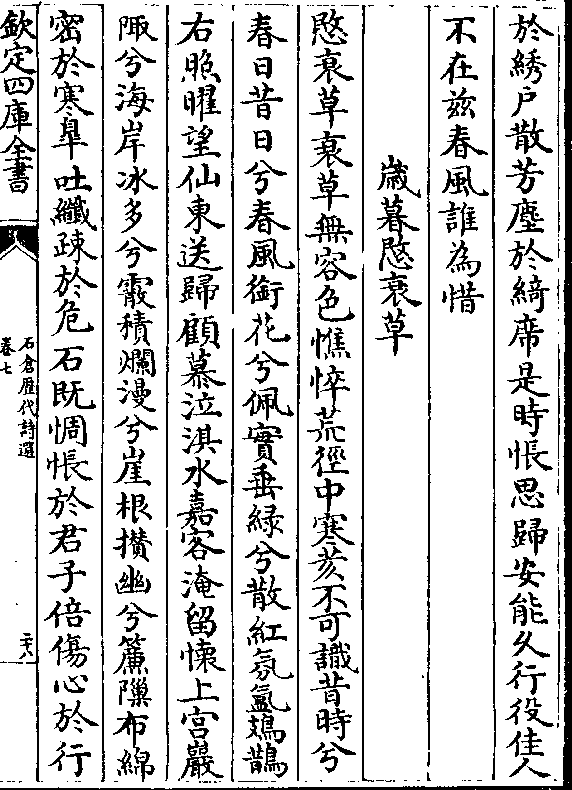 於綉户散芳塵於綺席是時悵思歸安能久行役佳人
不在兹春風誰為惜
歳暮愍衰草
愍衰草衰草無容色憔悴荒徑中寒荄不可識昔時兮
春日昔日兮春風銜花兮佩實垂緑兮散紅氛氳鳷鵲
右照曜望仙東送歸顧慕泣淇水嘉客淹留懐上宫巖
陬兮海岸冰多兮霰積爛漫兮崖根攅幽兮簾隟布綿
密於寒臯吐纖疎於危石既惆悵於君子倍傷心於行
欽定四庫全書
石倉歴代詩選
卷七
二十八